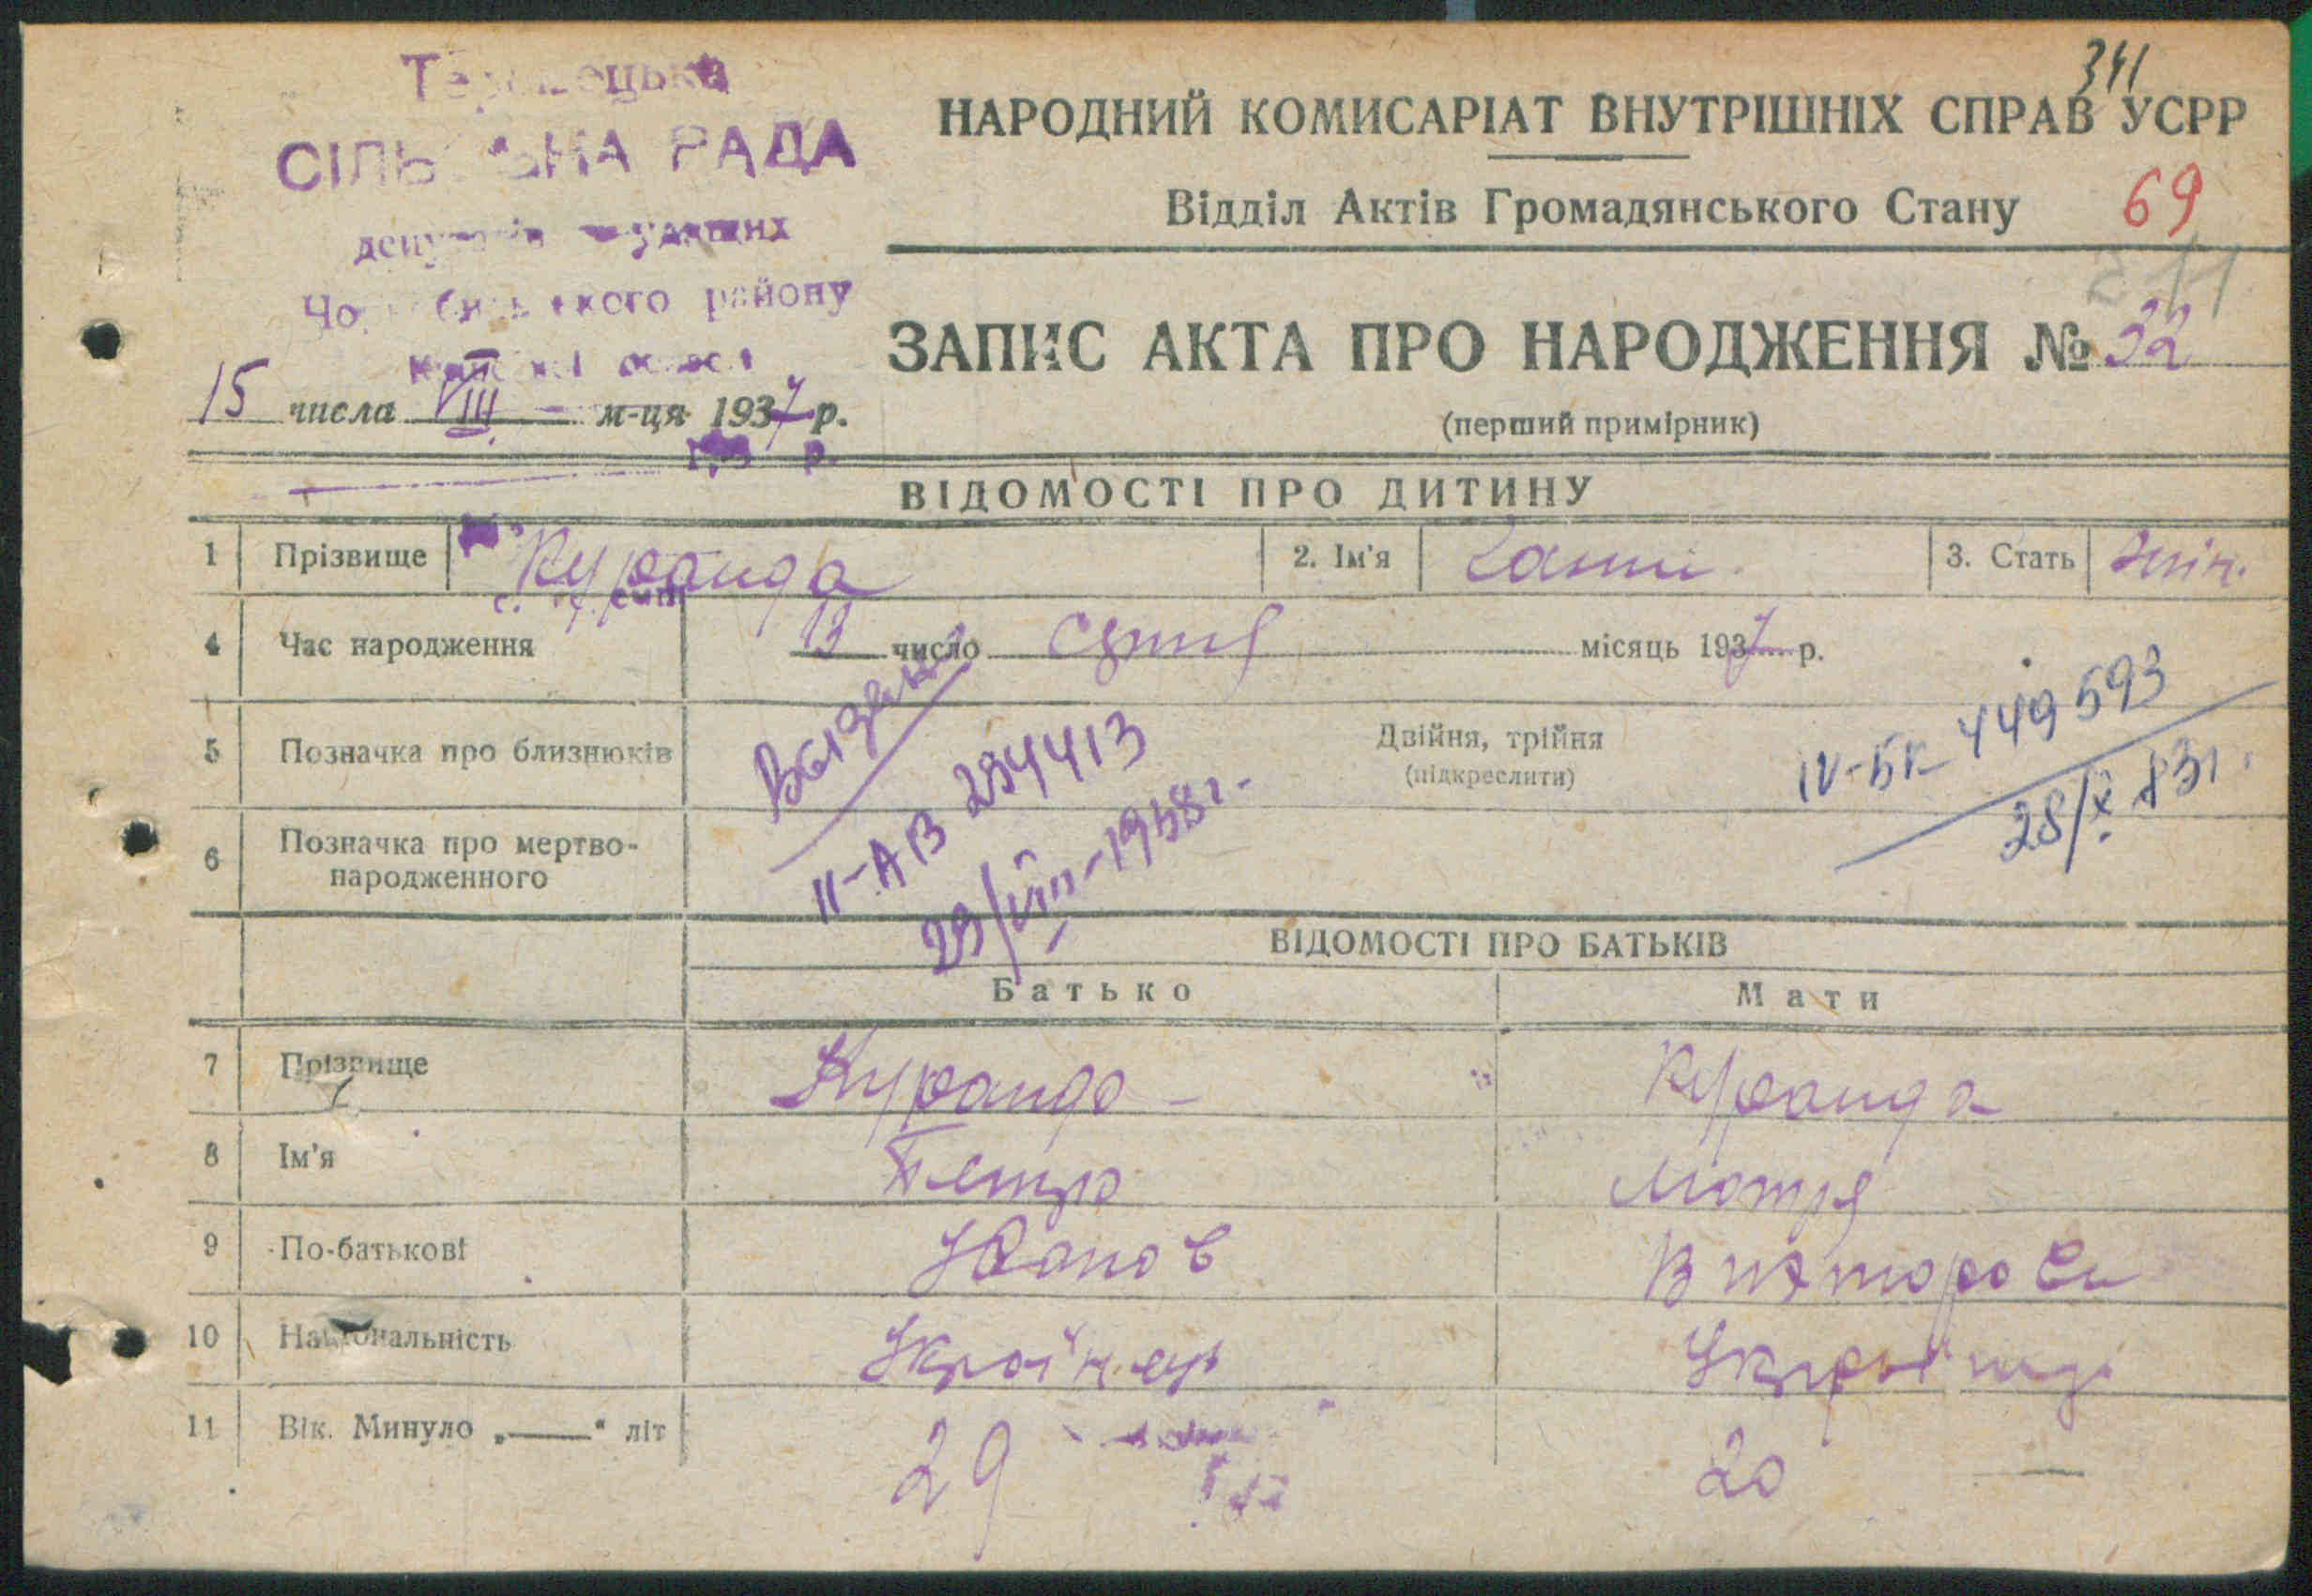 341
СІЛЬ ЬНА РАДА
району
15 числа VIII м-ця 1937 р.
НАРОДНИЙ КОМИСАРІАТ ВНУТРІШНІХ СПРАВ УСРР
Відділ Актів Громадянського Стану 69
ЗАПИС АКТА ПРО НАРОДЖЕННЯ № 32
(перший примірник)
ВІДОМОСТІ ПРО ДИТИНУ
1 Прізвище Куранда 2. Ім'я 3. Стать жін.
4 Час народження 13 число місяць 1937 р.
5 Позначка про близнюків Двійня, трійня
(підкреслити)
6 Позначка про мертво-
народженного
II-АВ 294413
29/VIII-1958г.
IV-БК 449593
28/X 83г.
ВІДОМОСТІ ПРО БАТЬКІВ
Батько Мати
7 Прізвище Куранда Куранда
8 Ім'я Петро Мотря
9 По-батькові
10 Національність Українець
11 Вік. Минуло „——“ літ 29 20